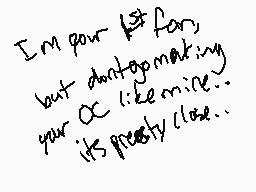 I'm your 1st fan,
but dont go making
your OC like mine..
its preety close..